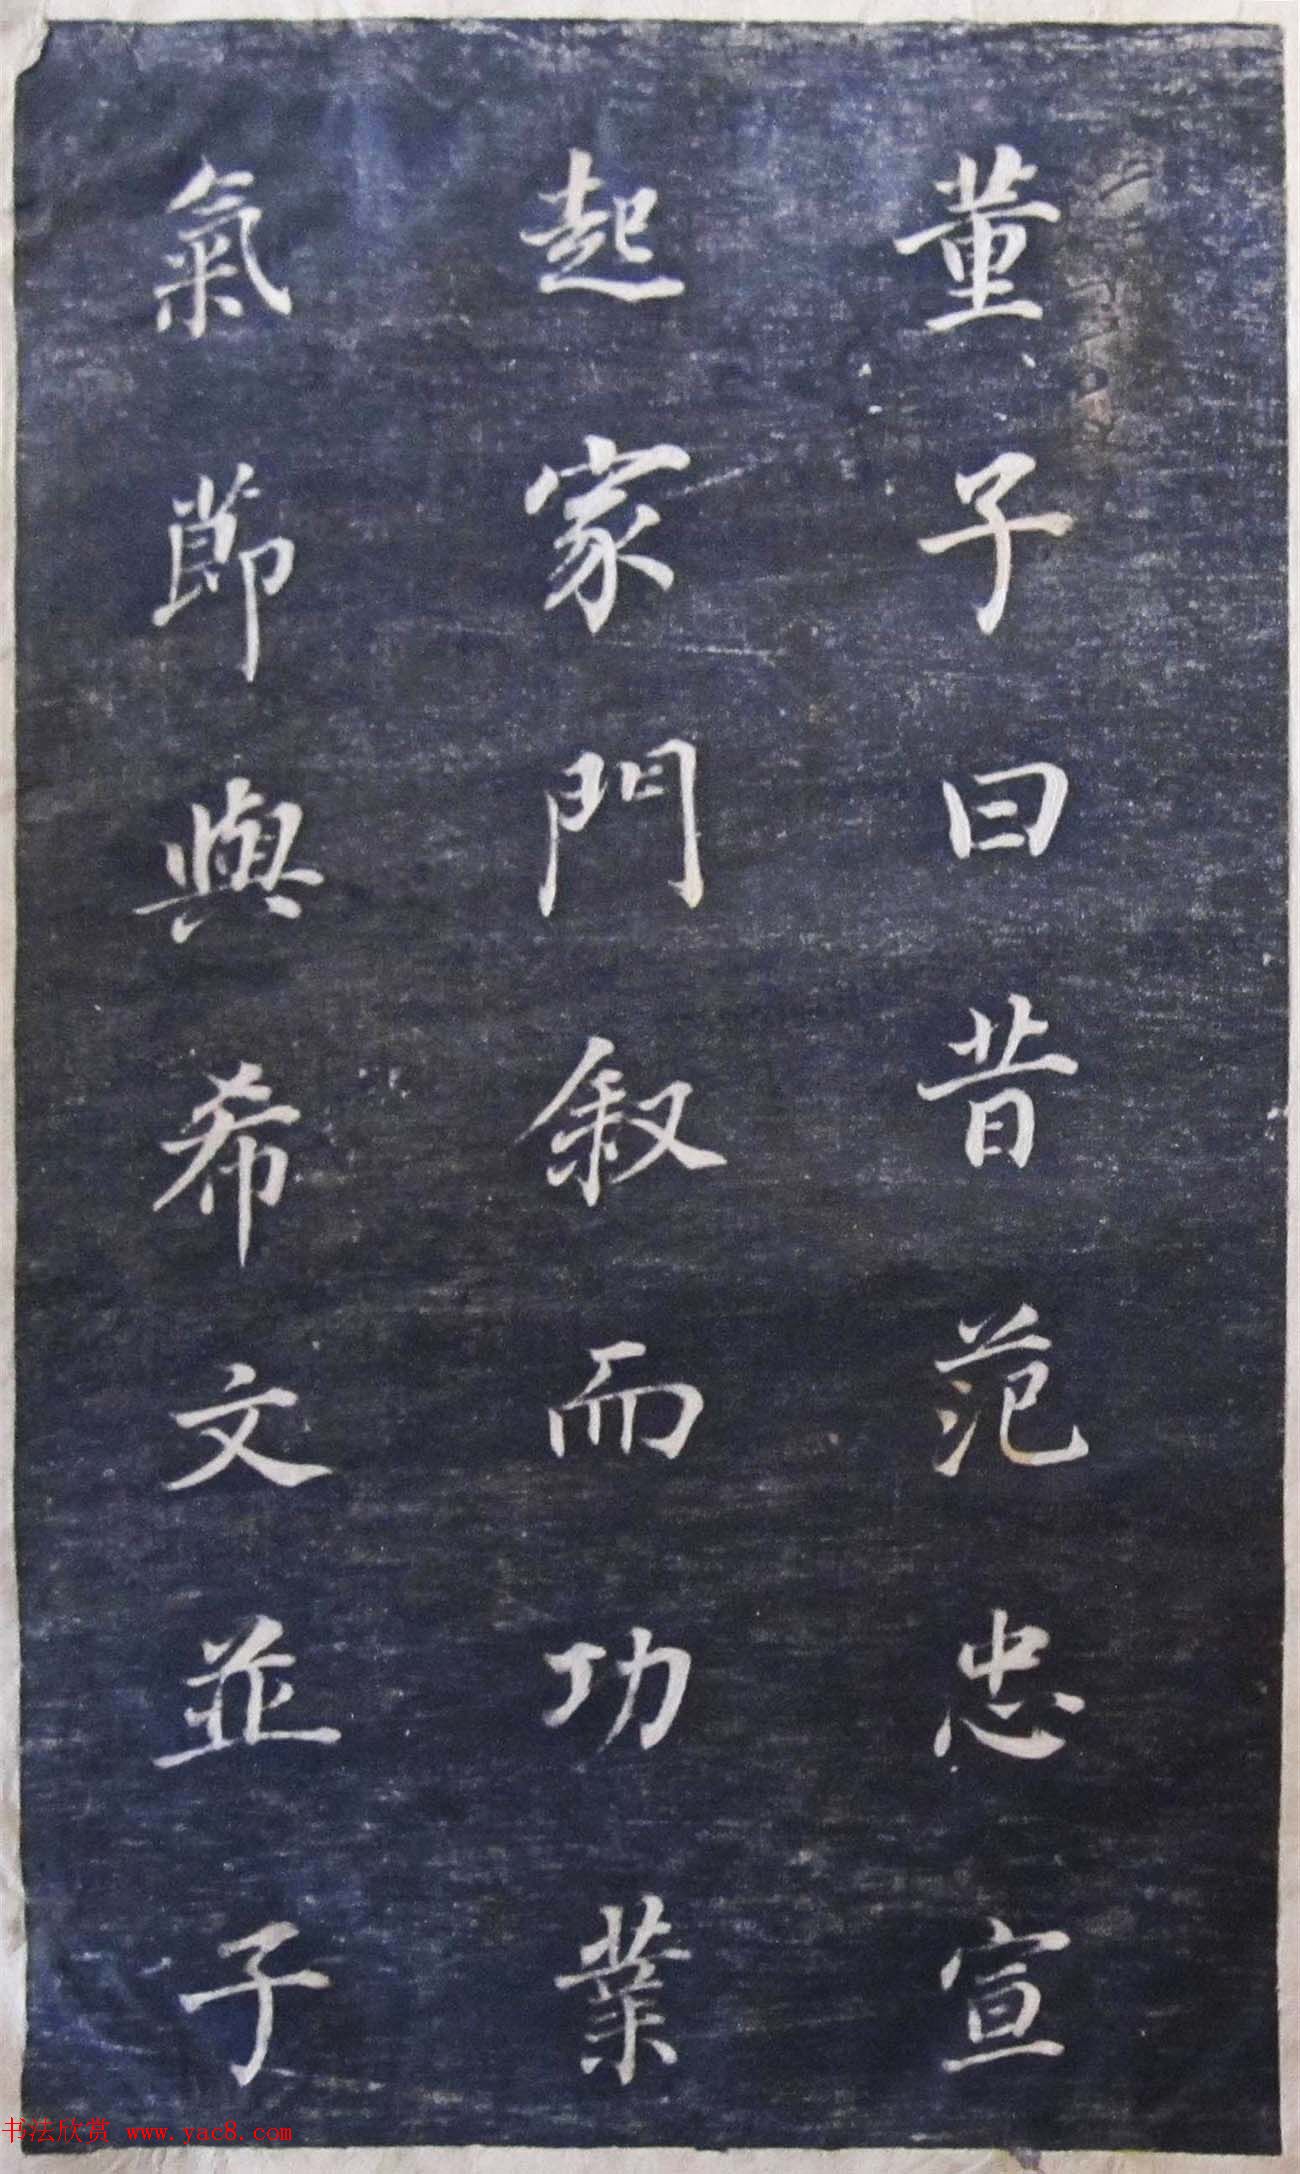 董子曰昔范忠宣
起家門叙而功業
氣節與希文並子
书法欣赏 www.yac8.com